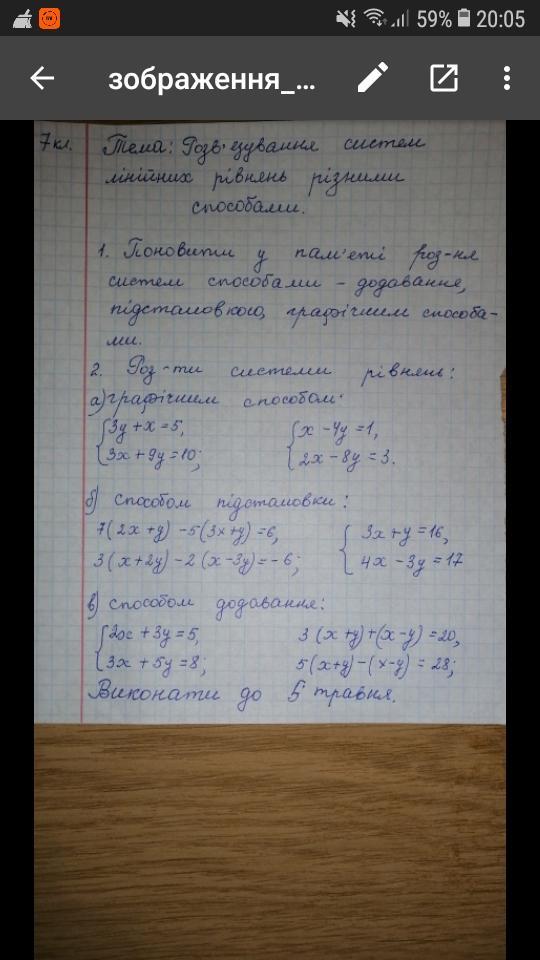 59% 20:05
зображення_...
7 кл. Тема: Розв'язування систем
лінійних рівнянь різними
способами.
1. Поновити у пам'яті роз-ня
систем способами - додавання,
підстановкою, графічним способа-
ми.
2. Роз-ти системи рівнянь:
а) графічним способом:
3y + x = 5, x - 4y = 1,
3x + 9y = 10; 2x - 8y = 3.
б) способом підстановки:
7(2x + y) - 5(3x + y) = 6, 3x + y = 16,
3(x + 2y) - 2(x - 3y) = -6; 4x - 3y = 17
в) способом додавання:
2x + 3y = 5, 3(x + y) + (x - y) = 20,
3x + 5y = 8; 5(x + y) - (x - y) = 28;
Виконати до 5 травня.